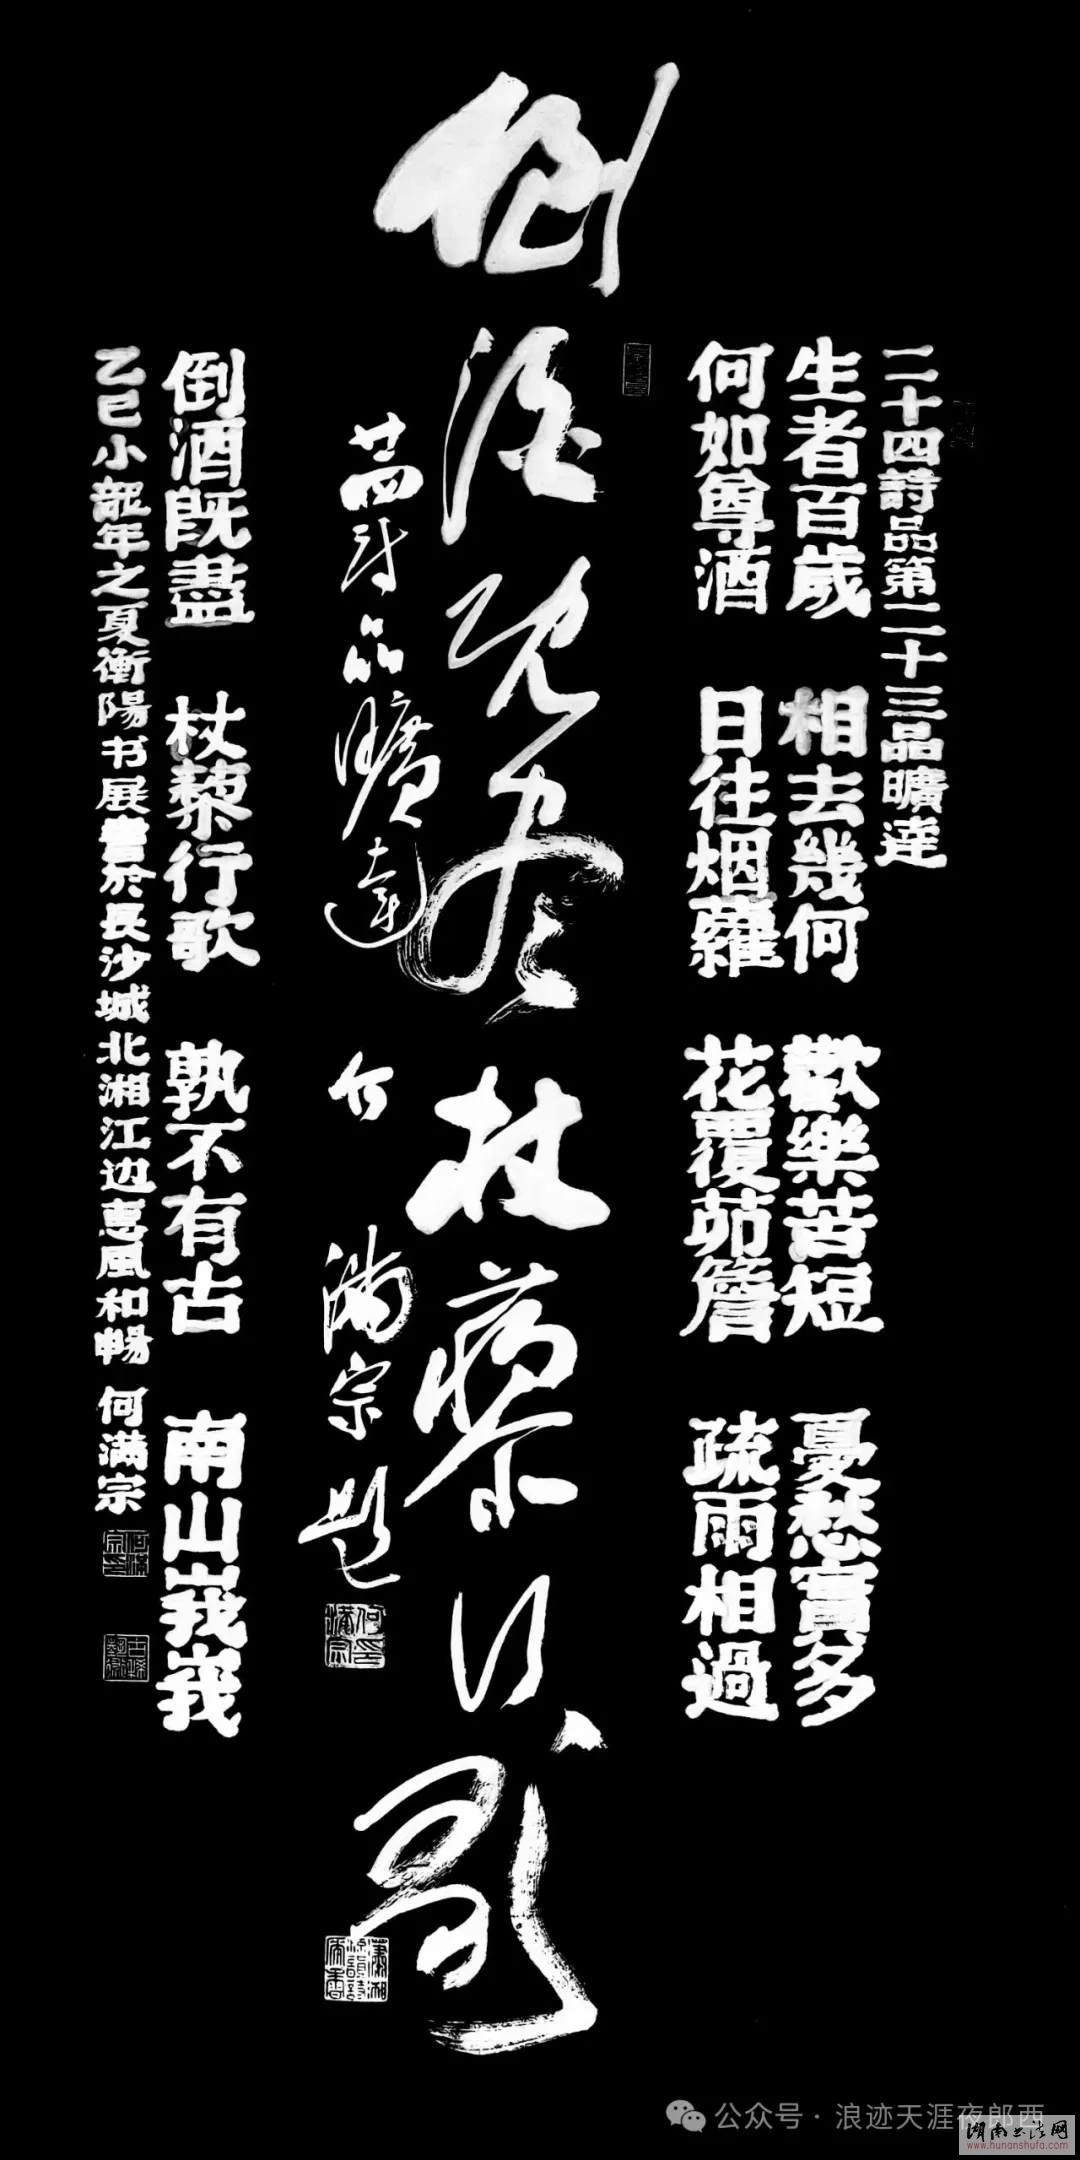 二十四詩品第二十三品曠達
生者百歲 相去幾何 歡樂苦短 憂愁實多
何如尊酒 日往烟蘿 花覆茆簷 疏雨相過
倒酒既盡 杖藜行歌
廿四詩品曠達 々 滿宗題
何滿宗印
瀟湘
倒酒既盡 杖藜行歌 孰不有古 南山峩峩
乙巳小龍年之夏衡陽书展書於長沙城北湘江边惠風和暢 何满宗
何滿宗印
公众号·浪迹天涯夜郎西
湖南书法网
www.hunanshufa.com